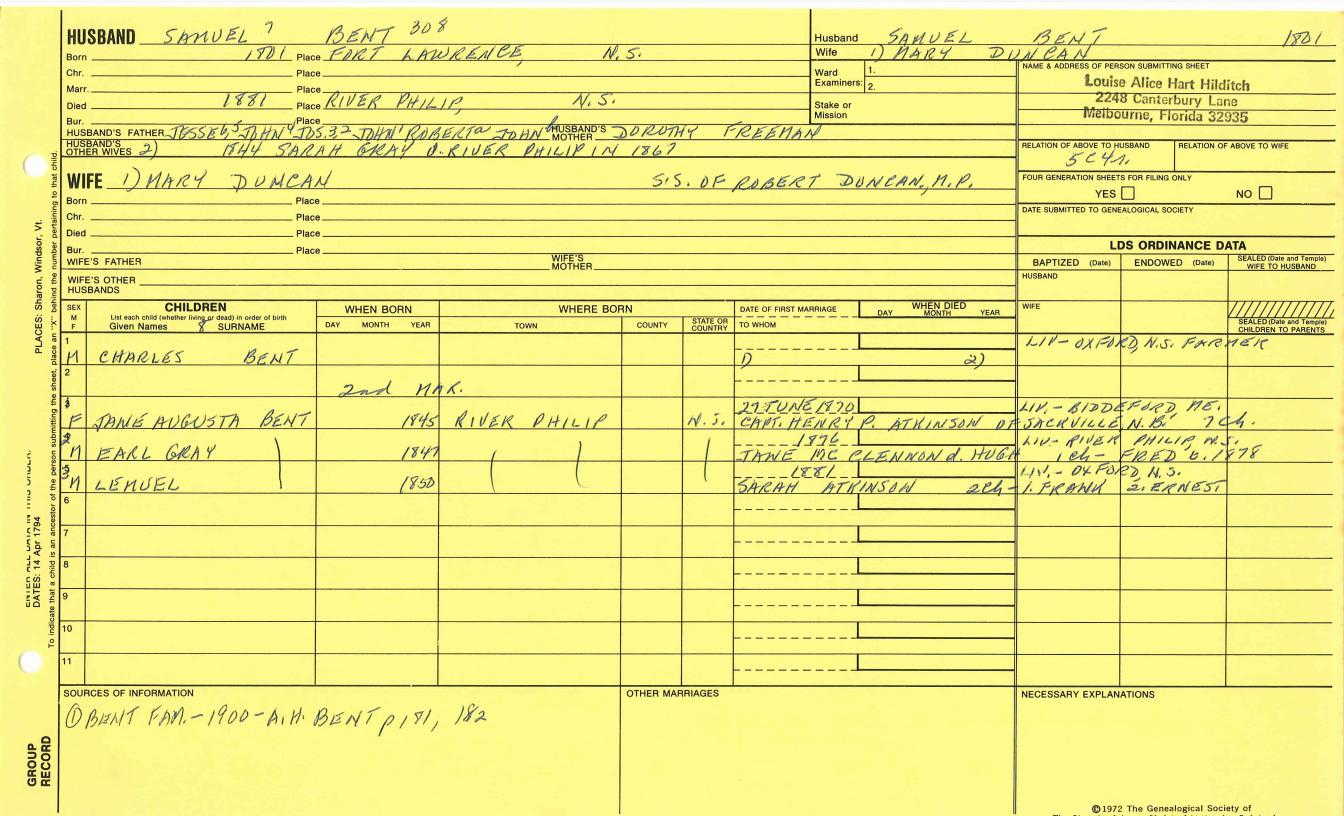 HUSBAND SAMUEL 7 BENT 308
Born 1801 Place FORT LAWRENCE, N.S.
Chr. Place
Marr. Place
Died 1881 Place RIVER PHILIP, N.S.
Bur. Place
HUSBAND'S FATHER JESSE 6, 5 JOHN 4 JOS. 3, 2 JOHN 1 ROBERT a JOHN b HUSBAND'S MOTHER DOROTHY FREEMAN
HUSBAND'S OTHER WIVES 2) 1844 SARAH GRAY d. RIVER PHILIP IN 1867
Husband SAMUEL BENT 1801
Wife 1) MARY DUNCAN
Ward Examiners: 1.
2.
Stake or Mission
NAME & ADDRESS OF PERSON SUBMITTING SHEET
Louise Alice Hart Hilditch
2248 Canterbury Lane
Melbourne, Florida 32935
RELATION OF ABOVE TO HUSBAND RELATION OF ABOVE TO WIFE
5C4r.
FOUR GENERATION SHEETS FOR FILING ONLY
YES NO
DATE SUBMITTED TO GENEALOGICAL SOCIETY
WIFE 1) MARY DUNCAN S.S. OF ROBERT DUNCAN, M.P.
Born Place
Chr. Place
Died Place
Bur. Place
WIFE'S FATHER WIFE'S MOTHER
WIFE'S OTHER HUSBANDS
LDS ORDINANCE DATA
BAPTIZED (Date) ENDOWED (Date) SEALED (Date and Temple) WIFE TO HUSBAND
HUSBAND
WIFE
SEALED (Date and Temple) CHILDREN TO PARENTS
SEX M F CHILDREN WHEN BORN WHERE BORN DATE OF FIRST MARRIAGE WHEN DIED
List each child (whether living or dead) in order of birth
Given Names 8 SURNAME DAY MONTH YEAR TOWN COUNTY STATE OR COUNTRY TO WHOM DAY MONTH YEAR
1 LIV- OXFORD, N.S. FARMER
M CHARLES BENT 1) 2)
2
2nd MAR.
27 JUNE 1870 LIV.- BIDDEFORD, ME.
F JANE AUGUSTA BENT 1845 RIVER PHILIP N.S. CAPT. HENRY P. ATKINSON OF SACKVILLE, N.B. 7 Ch.
2 1876 LIV- RIVER PHILIP, N.S.
M EARL GRAY 1847 JANE MC CLENNON d. HUGH 1 Ch- FRED b. 1878
3 1881 LIV.- OXFORD, N.S.
M LEMUEL 1850 SARAH ATKINSON 2Ch- 1. FRANK 2. ERNEST
6
7
8
9
10
11
SOURCES OF INFORMATION OTHER MARRIAGES NECESSARY EXPLANATIONS
① BENT FAM.-1900-A.H. BENT p 181, 182
©1972 The Genealogical Society of
PLACES: Sharon, Windsor, Vt.
DATES: 14 Apr 1794
To indicate that a child is an ancestor of the person submitting the sheet, place an "X" behind the number pertaining to that child.
GROUP RECORD